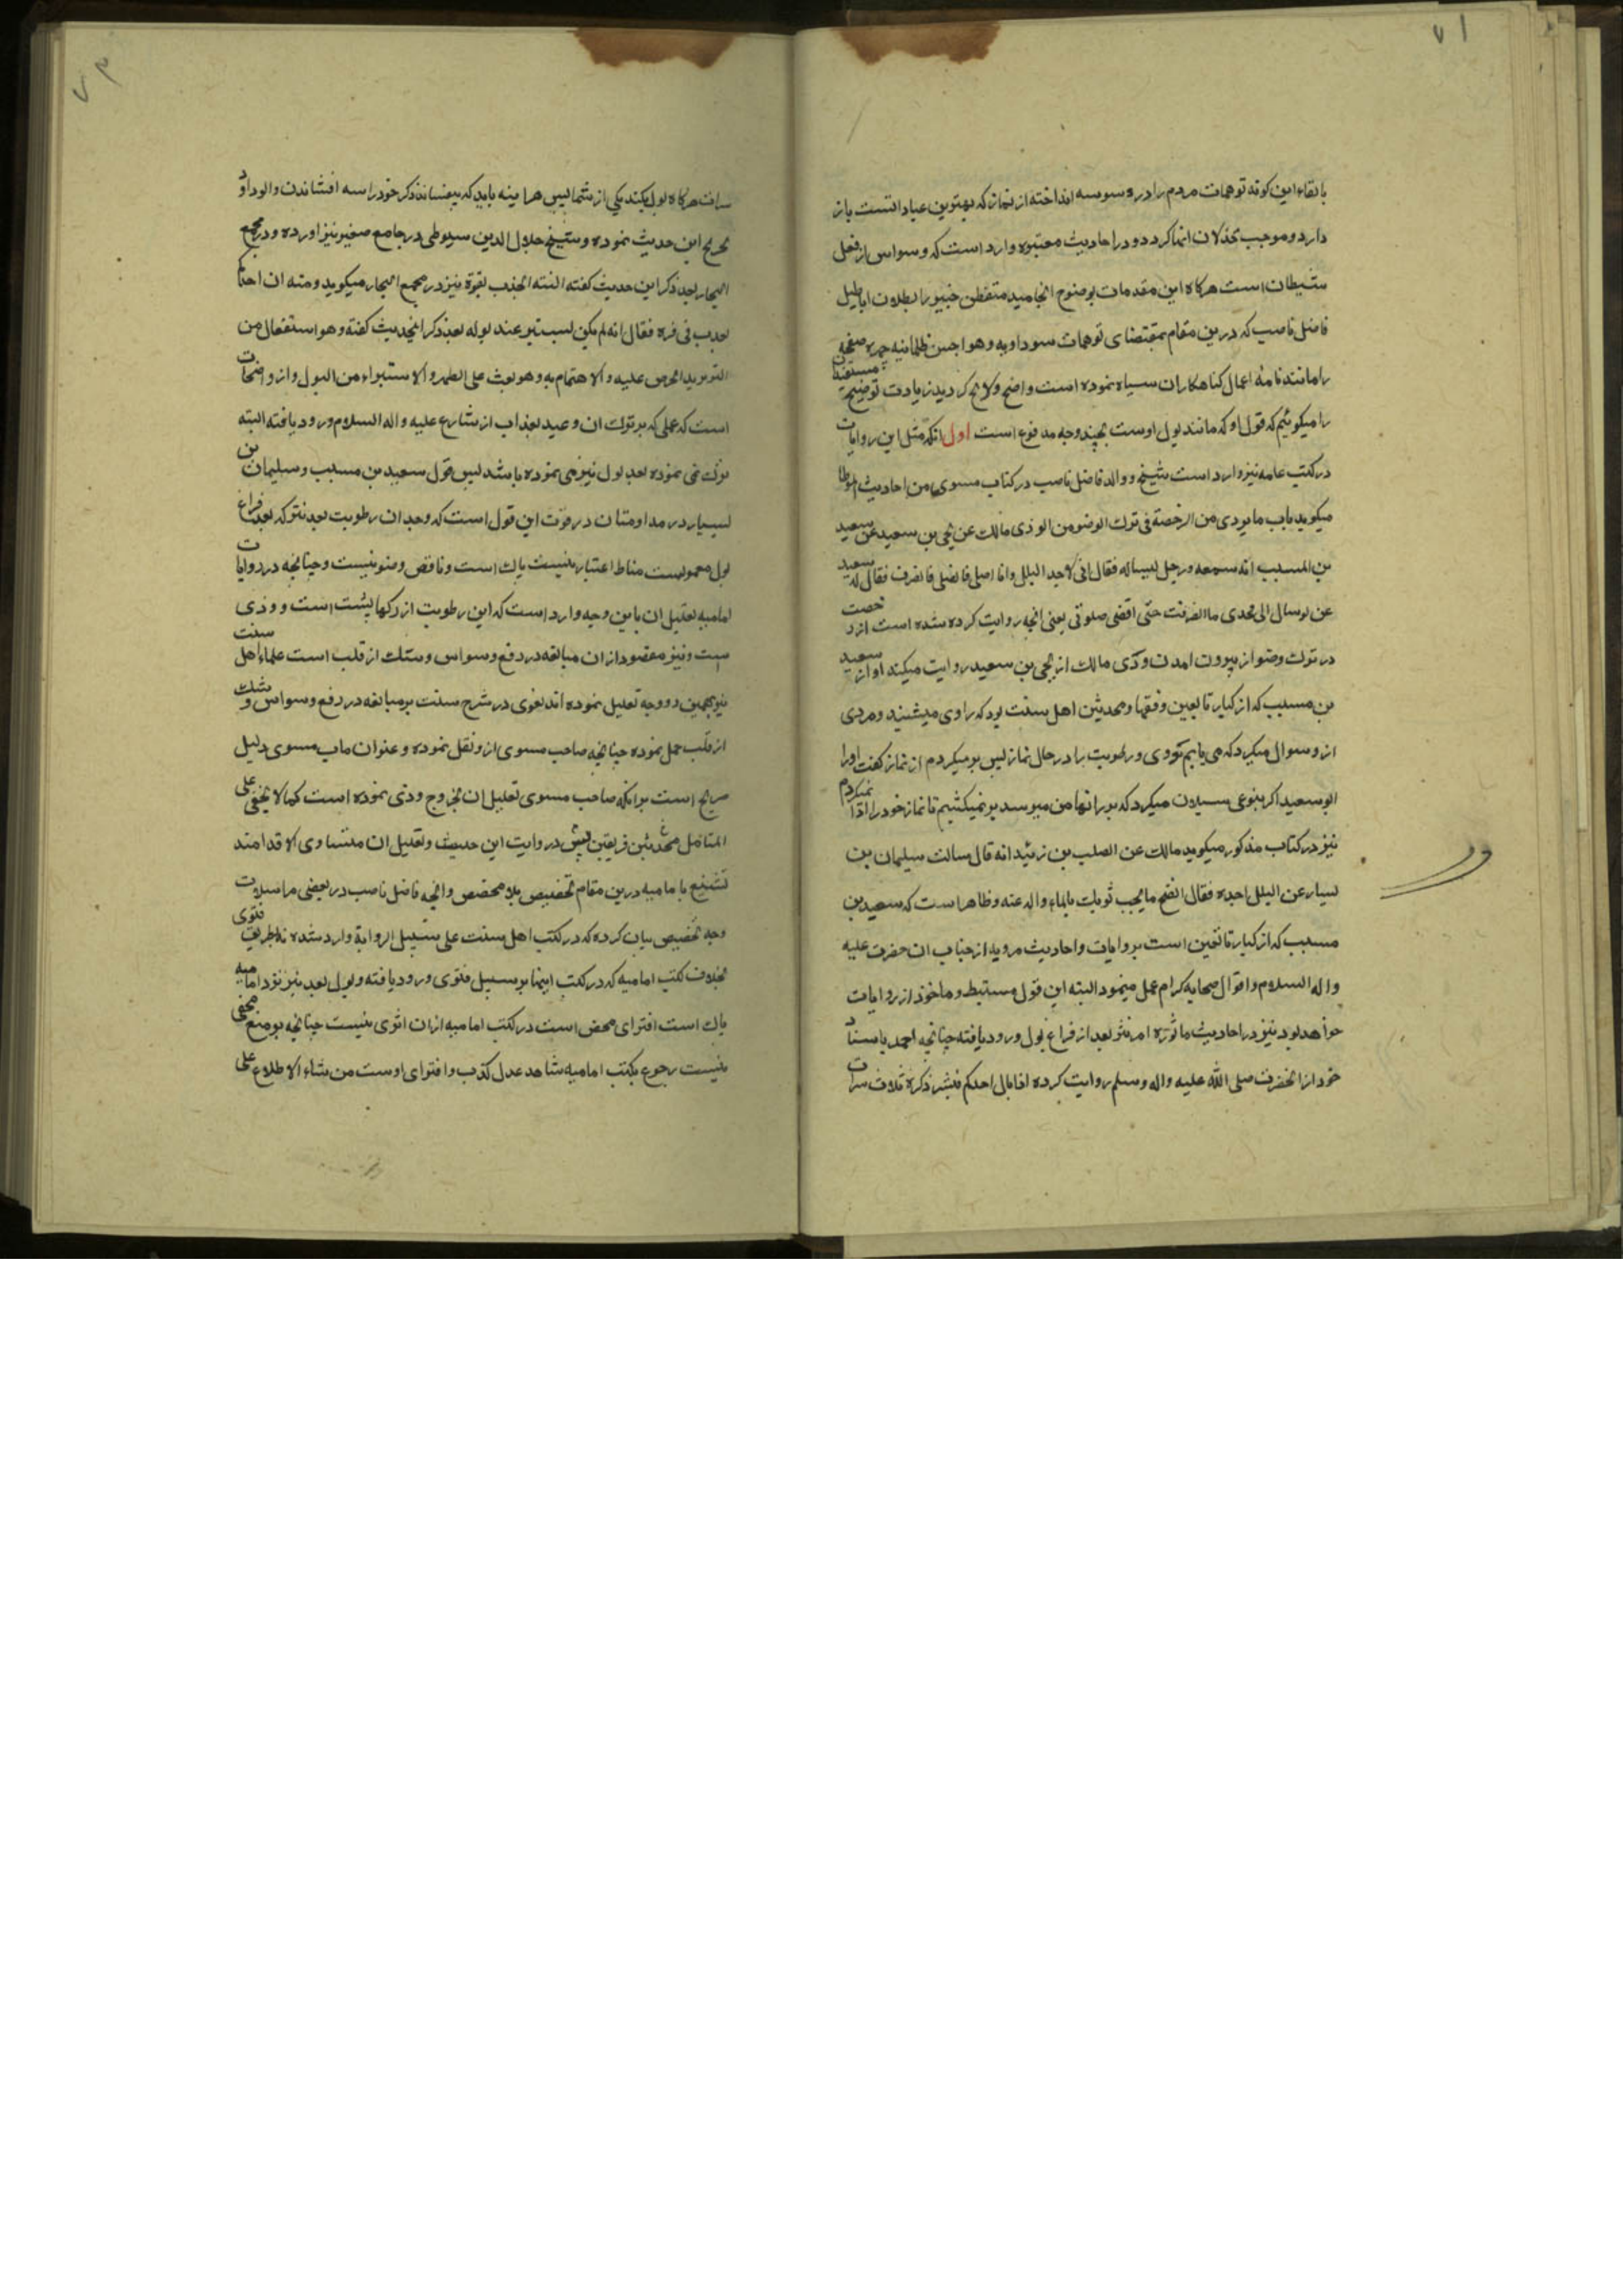 ۷۱
بالقاء این کونه توهمات مردم را در وسوسه انداخته از نماز که بهترین عباداتست باز
دارد و موجب خذلان انها کردد و در احادیث معتبره وارد است که وسواس از فعل
شیطان است هرکاه این مقدمات بوضوح انجامید متفطن خبیر را بطلان اباطیل
فاضل ناصب که درین مقام بمقتضای توهمات سوداویه و هواجس ظلمانیه چهره صفحه
را مانند نامهٔ اعمال کناهکاران سیاه نموده است واضح و لایح کردید زیادت توضیح مستفیدان
را میکوئیم که قول او که مانند بول اوست بچند وجه مدفوع است اول انکه مثل این روایات
در کتب عامه نیز وارد است شیخ و والد فاضل ناصب در کتاب مسوی من احادیث الموطا
میکوید باب ما یروی من الرخصة فی ترک الوضو من الوذی مالک عن یحیی بن سعید عن سعید
بن المسیب انه سمعه و رجل یساله فقال انی لاجد البلل وانا اصلی فانصرف فقال له سعید
عن لو سال الی فخذی ما انصرفت حتی اقضی صلوتی یعنی انچه روایت کرده شده است از رخصت
در ترک وضو از بیرون امدن وذی مالک از یحیی بن سعید روایت میکند او از سعید
بن مسیب که از کبار تابعین و فقها و محدثین اهل سنت بود که راوی میشنید و مردی
از و سوال میکرد که می یابم تودی و رطوبت را در حال نماز پس برمیکردم از نماز کفت اورا
ابو سعید اکر بنوعی سیلان میکرد که بر رانها من میرسد بر نمیکشتیم تا نماز خود را ادا نمیکردم
نیز در کتاب مذکور میکوید مالک عن الصلت بن زیید انه قال سالت سلیمان بن
یسار عن البلل اجده فقال انضح ما تحت ثوبک بالماء واله عنه و ظاهر است که سعید بن
مسیب که از کبار تابعین است بروایات و احادیث مرویه از جناب ان حضرت علیه
واله السلام و اقوال صحابه کرام عمل مینمود البته این قول مستنبط و ماخوذ از روایات
خواهد بود نیز در احادیث ماثوره امر نثر بعد از فراغ بول ورود یافته چنانچه احمد باسناد
خود از انحضرت صلی الله علیه واله وسلم روایت کرده اذا بال احدکم فلینثر ذکره ثلاث مرات
مرات هرکاه بول بکند یکی از شما پس هراینه باید که بیفشاند ذکر خود را سه افشاندن و ابو داود
تخریج این حدیث نموده و شیخ جلال الدین سیوطی در جامع صغیر نیز اورده و در مجمع
البحار بعد ذکر این حدیث کفته النتر الجذب بقوة نیز در مجمع البحار میکوید و منه ان احدکم
یعذب فی قبره فقال انه لم یکن یستنتر عند بوله بعد ذکر انحدیث کفته و هو استفعال من
النتر یرید الحرص علیه و الاهتمام به و هو بعث علی الطهر و الاستبراء من البول و از واضحات
است که عملی که بر ترک ان وعید بعذاب از شارع علیه واله السلام ورود یافته البته
ترک نمی نموده بعد بول نیز می نموده باشد پس قول سعید بن مسیب و سلیمان بن
یسیار در مداومتان در قوت این قول است که وجدان رطوبت بعد نتر که بعد فراغ
بول معمولست مناط اعتبار نیست پاک است و ناقض وضو نیست و چنانچه در روایات
امامیه تعلیل ان باین وجه وارد است که این رطوبت از رکها پشت است و وذی
است و نیز مقصود از ان مبالغه در دفع وسواس و شک از قلب است علماء اهل سنت
نیز بهمین دو وجه تعلیل نموده اند بغوی در شرح سنت بر مبالغه در دفع وسواس و شک
از قلب حمل نموده چنانچه صاحب مسوی ازو نقل نموده و عنوان باب مسوی دلیل
صریح است برانکه صاحب مسوی تعلیل ان بخروج وذی نموده است کما لا یخفی علی
المتامل محدثین فریقین پیش در روایت این حدیث و تعلیل ان متساوی الاقدامند
تشنیع بامامیه درین مقام تخصیص بلا مخصص و انچه فاضل ناصب در بعضی مراسلات
وجه تخصیص بیان کرده که در کتب اهل سنت علی سبیل الروایة وارد شده نه بطریق فتوی
بخلاف کتب امامیه که در کتب اینها بر سبیل فتوی ورود یافته و بول بعد نیز نزد امامیه
پاک است افترای محض است در کتب امامیه ازان اثری نیست چنانچه بر متبع مخفی
نیست رجوع بکتب امامیه شاهد عدل کذب و افترای اوست من شاء الاطلاع علی